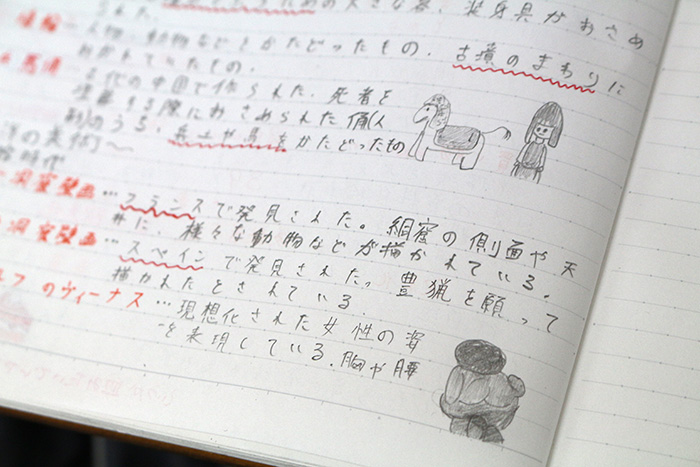 ための大きな器、装身具がおさめ
られた.
埴輪…人物、動物などをかたどったもの. 古墳のまわりに
おかれていたもの.
古代の中国で作られた. 死者を
埋葬する際におさめられた俑(人
形)のうち、兵士や馬をかたどったもの
洋の美術〜
時代
洞窟壁画…フランスで発見された。 細窟の側面や天
井に、様々な動物などが描かれている.
洞窟壁画…スペインで発見された。 豊猟を願って
描かれたとされている.
のヴィーナス…現想化された女性の姿
を表現している. 胸や腰